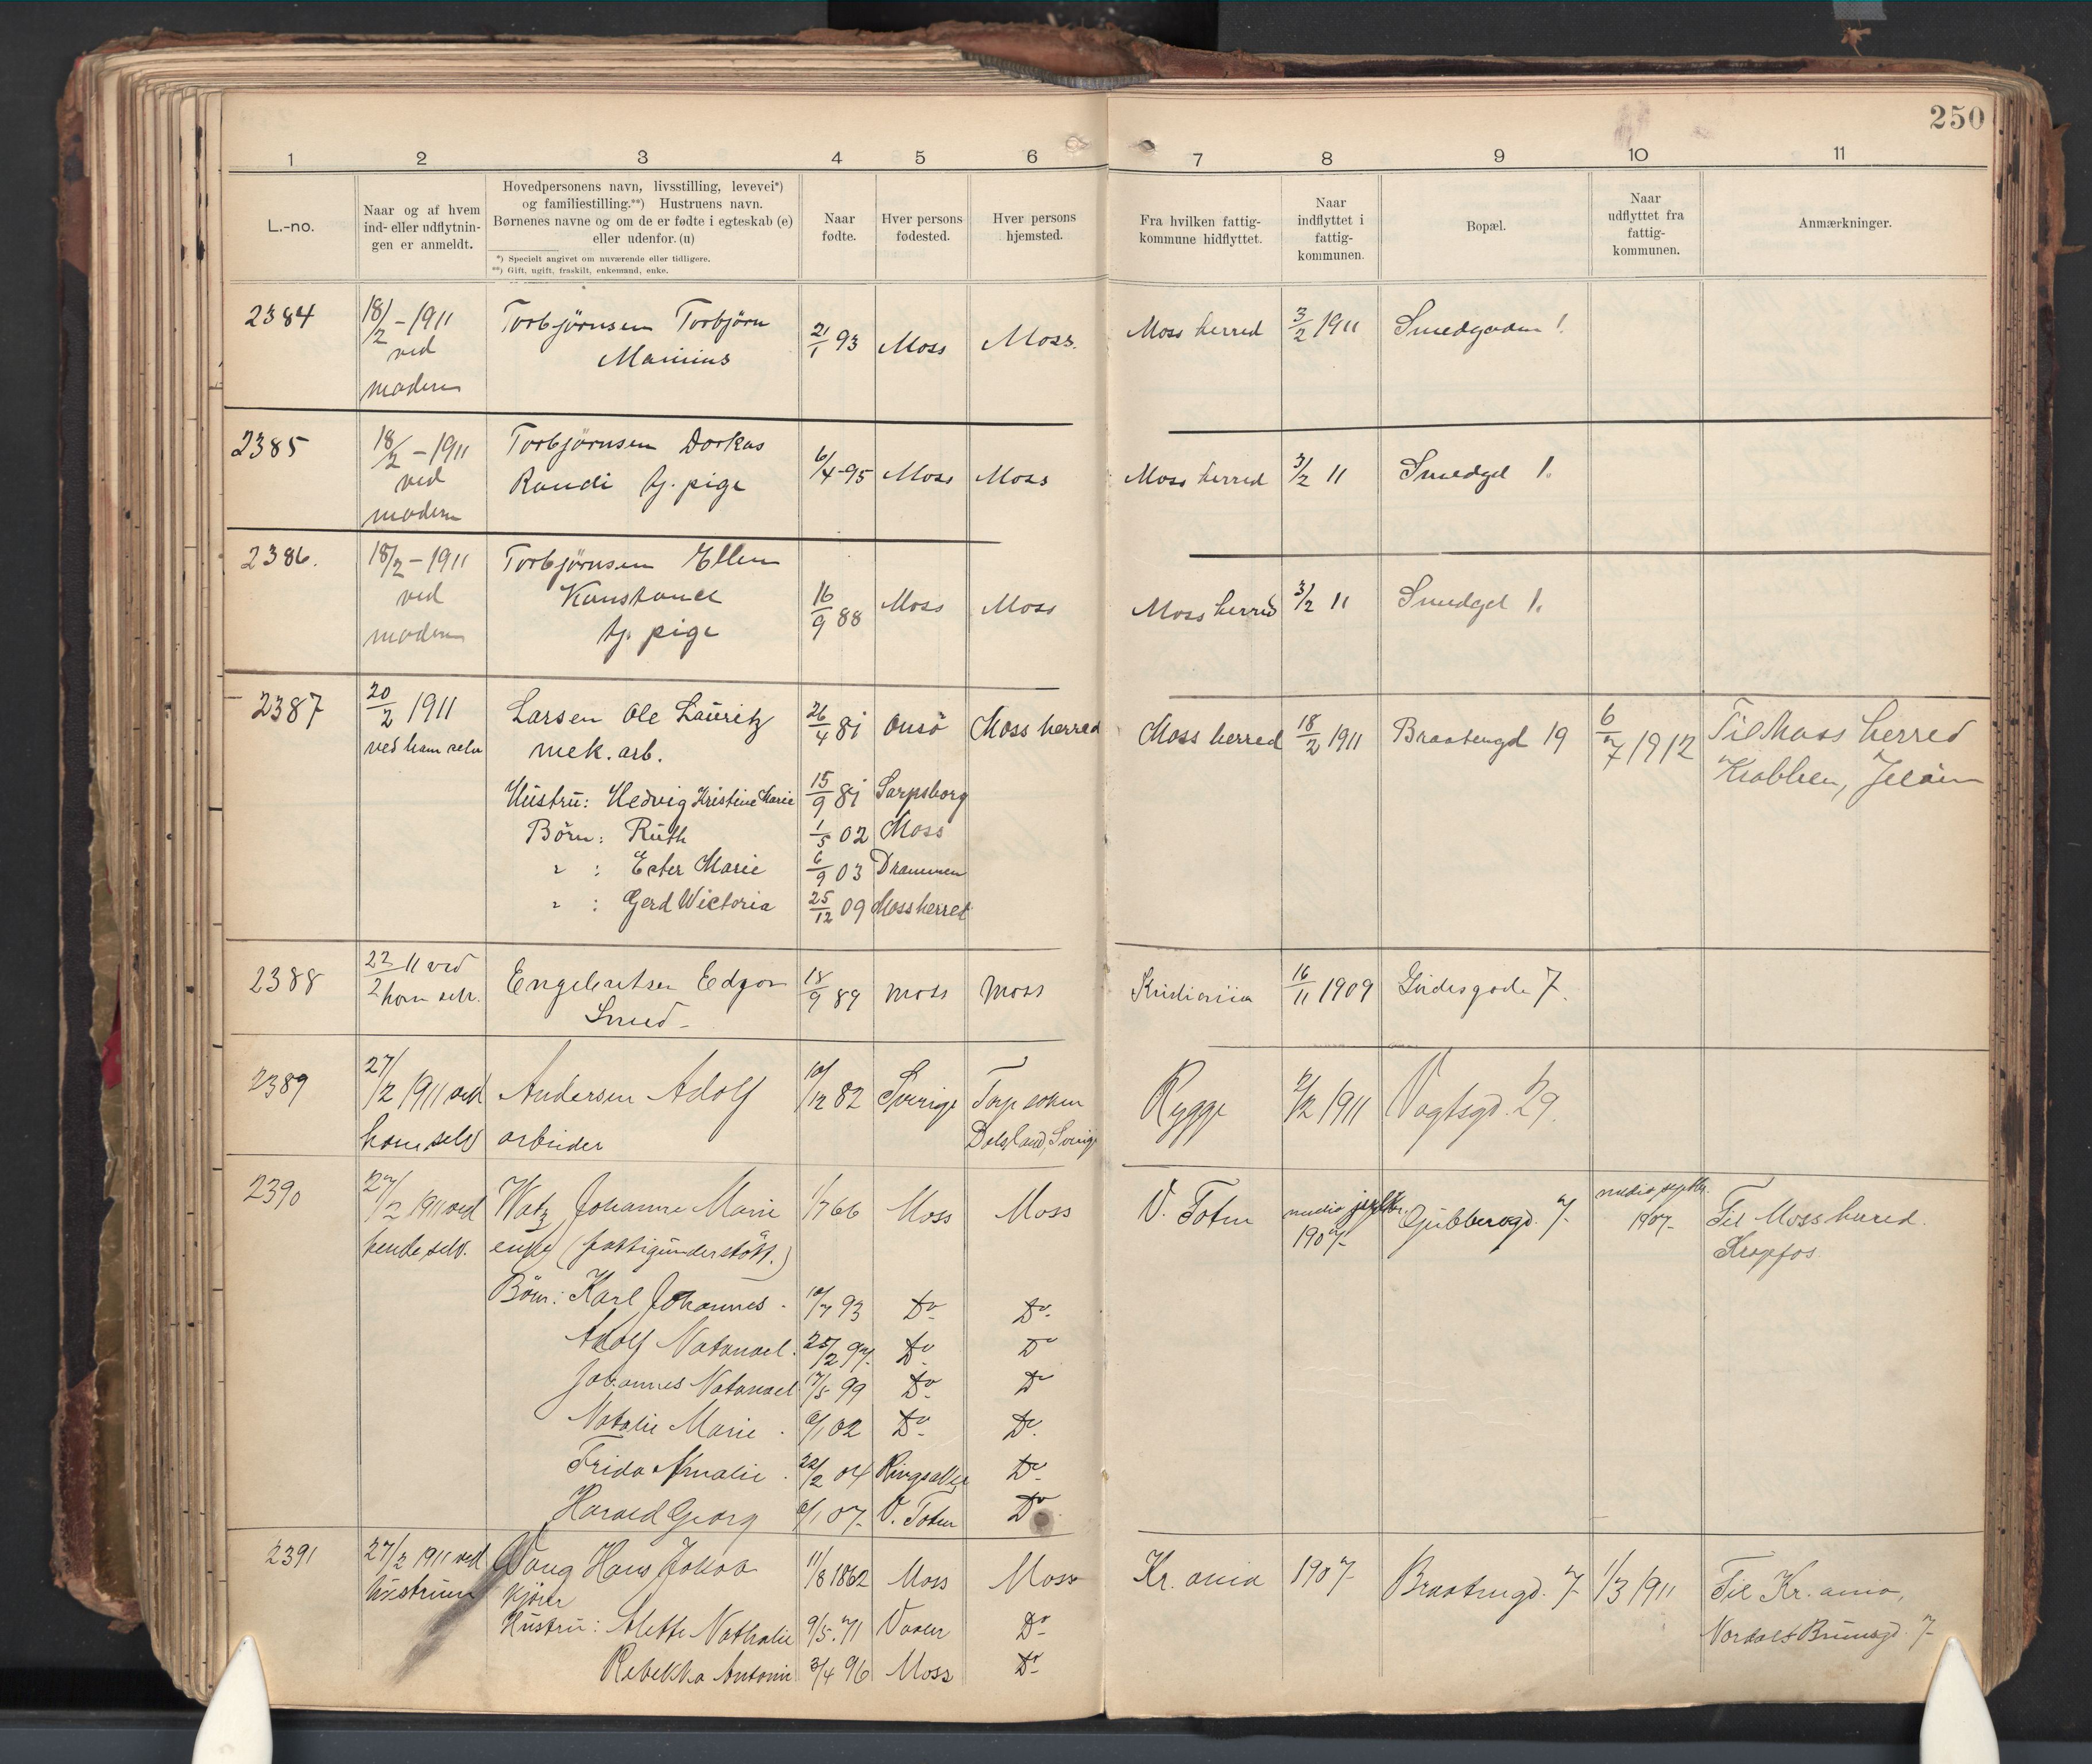 250
1 2 3 4 5 6 7 8 9 10 11
L.-no.
Naar og af hvem
ind- eller udflytnin-
gen er anmeldt.
Hovedpersonens navn, livsstilling, levevei*)
og familiestilling.**) Hustruens navn.
Børnenes navne og om de er fødte i egteskab (e)
eller udenfor. (u)
*) Specielt angivet om nuværende eller tidligere.
**) Gift, ugift, fraskilt, enkemand, enke.
Naar
fødte.
Hver persons
fødested.
Hver persons
hjemsted.
Fra hvilken fattig-
kommune hidflyttet.
Naar
indflyttet i
fattig-
kommunen.
Bopæl.
Naar
udflyttet fra
fattig-
kommunen.
Anmærkninger.
2384 18/2 - 1911 Torbjørnsen Torbjørn 21/1 93 Moss Moss. Moss herred 3/2 1911 Smedgaden 1.
ved Marinius
moderen
2385 18/2 - 1911 Torbjørnsen Dorkas 6/4 - 95 Moss Moss Moss herred 3/2 11 Smedgd 1.
ved Randi tj. pige
moderen
2386. 18/2 - 1911 Torbjørnsen Ellen
ved Konstance 16/9 88 Moss Moss Moss herred 3/2 11 Smedgd 1.
moderen tj. pige
2387 20/2 1911 Larsen Ole Lauritz 26/4 81 Onsö Moss herred Moss herred 18/2 1911 Braatengd 19 6/7 1912 Til Moss herred
ved ham selv mek. arb. Krabben, Jeløen
Hustru: Hedvig Kristine Marie 15/9 81 Sarpsborg
Börn: Ruth 1/5 02 Moss
" : Ester Marie 6/9 03 Drammen
" : Gerd Wictoria 25/12 09 Moss herred
2388 22/2 11 ved Engebretsen Edgar 18/9 89 Moss Moss Kristiania 16/11 1909 7.
ham selv. Smed
2389 27/2 1911 ved Andersen Adolf 10/12 82 Sverige Torp soken Rygge 2/2 1911 Vogtsgd. 29.
ham selv arbeider Dalsland, Sverige
2390 27/2 1911 ved Watz Johanne Marie 1/7 66 Moss Moss V. Toten medio 1907 7 medio septbr. 1907 Til Moss herred.
hende selv. enke (fattigunderstött.) Krapfos.
Börn: Karl Johannes 10/7 93 Do Do
Adolf Natanael 25/2 97 Do Do
Johannes Natanael 17/5 99 Do Do
Natalie Marie 02 Do Do
Frida Amalie 22/2 04 Ringsaker Do
Harald Georg 07 V. Toten Do
2391 27/2 1911 ved Vang Hans Jakob 11/8 1862 Moss Moss Kr. ania 1907 Braatengd. 7 1/3 1911 Til Kr. ania,
hustruen kjører Nordalf Brunsgd. 7
Hustru: Alette Nathalie 9/5. 71 Vaaler Do
Rebekka Antonie 3/4 96 Moss Do